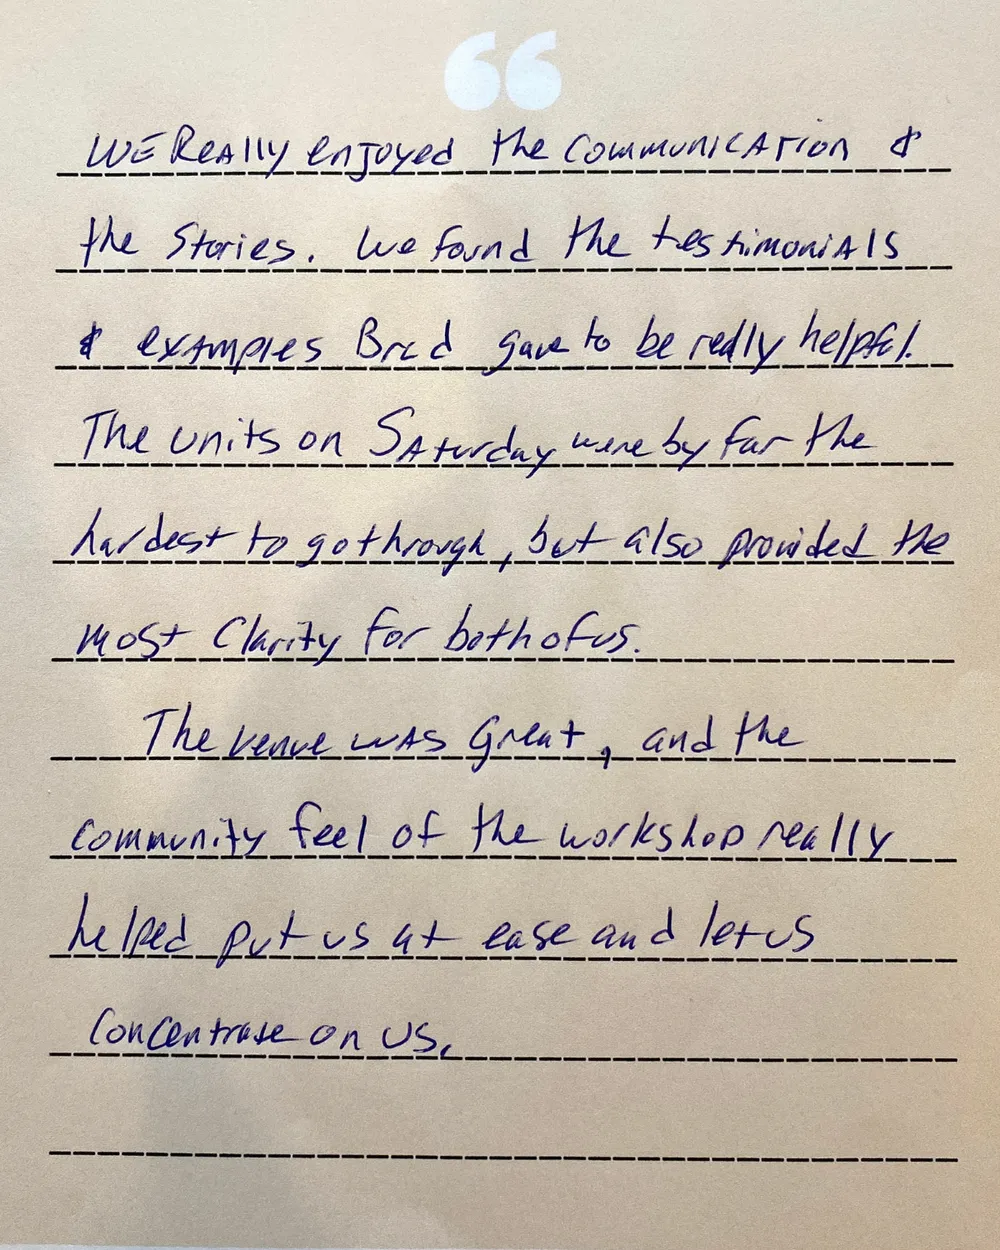 We Really enjoyed the communication &
the Stories. We found the testimonials
& examples Brad gave to be really helpful.
The units on Saturday were by far the
hardest to go through, but also provided the
most Clarity for both of us.
The venue was Great, and the
community feel of the workshop really
helped put us at ease and let us
concentrate on us.